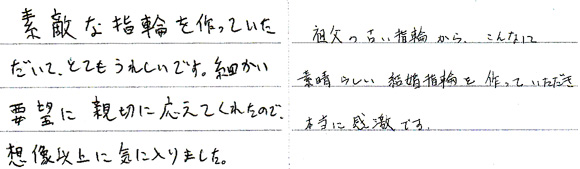 素敵な指輪を作っていた
だいて、とてもうれしいです。細かい
要望に親切に応えてくれたので、
想像以上に気に入りました。
祖父の古い指輪から、こんなに
素晴らしい結婚指輪を作っていただき
本当に感激です。